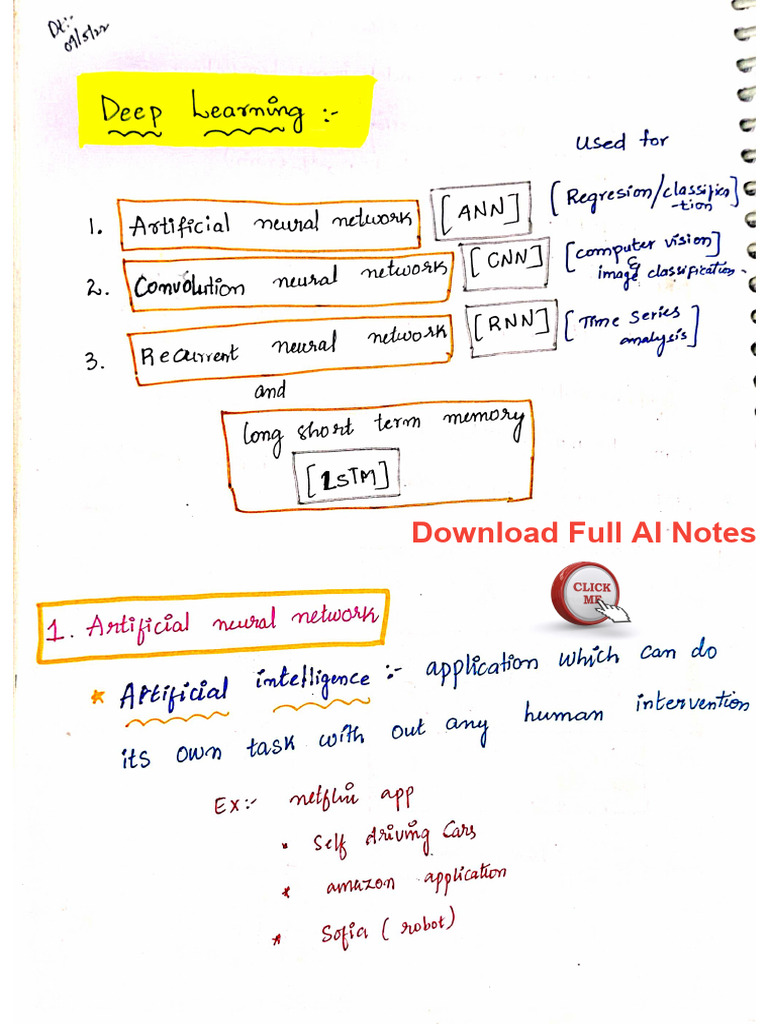 Dt:-
09/5/22
Deep Learning :-
used for
1. Artificial neural network [ANN] [Regresion/classifica
-tion]
2. Convolution neural network [CNN] [computer vision]
& image classification.
3. Recurrent neural network [RNN] [Time Series
analysis]
and
long short term memory
[LSTM]
Download Full AI Notes
CLICK
ME
1. Artificial neural network
* Artificial intelligence :- application which can do
its own task with out any human intervention
Ex:- netflix app
• Self driving Cars
* amazon application
* Sofia (robot)